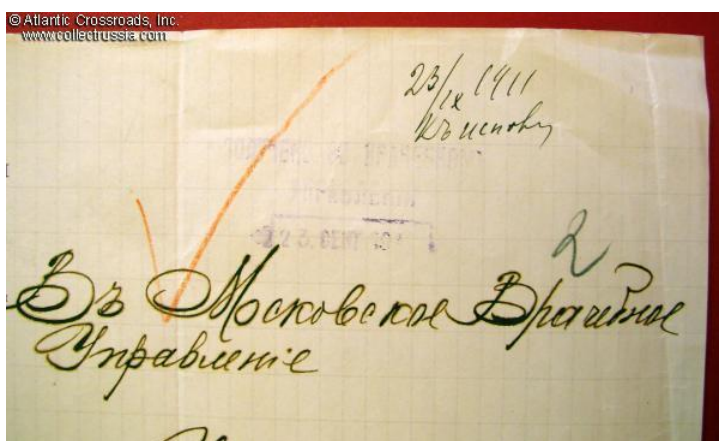 © Atlantic Crossroads, Inc.
www.collectrussia.com
23/IX 1911
Къ исполн
23 СЕНТ 191
2
Въ Московское Врачебное
Управленіе